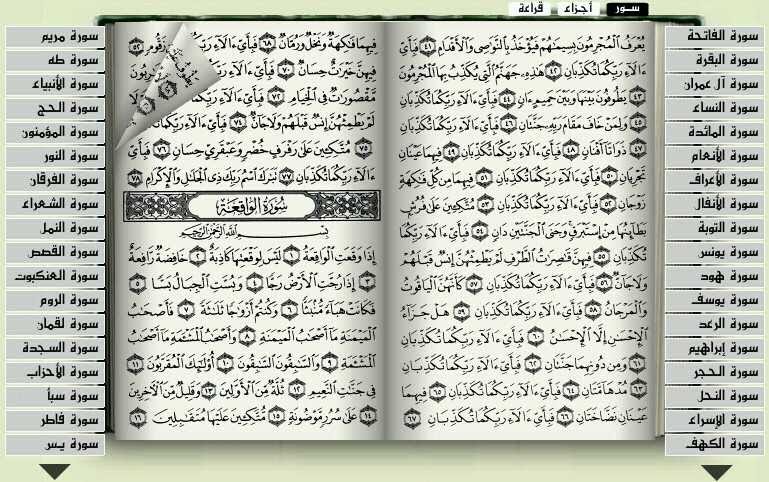 سور أجزاء قراءة
سورة الفاتحة
سورة البقرة
سورة آل عمران
سورة النساء
سورة المائدة
سورة الأنعام
سورة الأعراف
سورة الأنفال
سورة التوبة
سورة يونس
سورة هود
سورة يوسف
سورة الرعد
سورة إبراهيم
سورة الحجر
سورة النحل
سورة الإسراء
سورة الكهف
يُعْرَفُ ٱلْمُجْرِمُونَ بِسِيمَٰهُمْ فَيُؤْخَذُ بِٱلنَّوَٰصِى وَٱلْأَقْدَامِ ٤١ فَبِأَىِّ
ءَالَآءِ رَبِّكُمَا تُكَذِّبَانِ ٤٢ هَٰذِهِۦ جَهَنَّمُ ٱلَّتِى يُكَذِّبُ بِهَا ٱلْمُجْرِمُونَ
٤٣ يَطُوفُونَ بَيْنَهَا وَبَيْنَ حَمِيمٍ ءَانٍ ٤٤ فَبِأَىِّ ءَالَآءِ رَبِّكُمَا تُكَذِّبَانِ
٤٥ وَلِمَنْ خَافَ مَقَامَ رَبِّهِۦ جَنَّتَانِ ٤٦ فَبِأَىِّ ءَالَآءِ رَبِّكُمَا تُكَذِّبَانِ
٤٧ ذَوَاتَآ أَفْنَانٍ ٤٨ فَبِأَىِّ ءَالَآءِ رَبِّكُمَا تُكَذِّبَانِ ٤٩ فِيهِمَا عَيْنَانِ
تَجْرِيَانِ ٥٠ فَبِأَىِّ ءَالَآءِ رَبِّكُمَا تُكَذِّبَانِ ٥١ فِيهِمَا مِن كُلِّ فَٰكِهَةٍ
زَوْجَانِ ٥٢ فَبِأَىِّ ءَالَآءِ رَبِّكُمَا تُكَذِّبَانِ ٥٣ مُتَّكِـِٔينَ عَلَىٰ فُرُشٍۭ
بَطَآئِنُهَا مِنْ إِسْتَبْرَقٍ وَجَنَى ٱلْجَنَّتَيْنِ دَانٍ ٥٤ فَبِأَىِّ ءَالَآءِ رَبِّكُمَا
تُكَذِّبَانِ ٥٥ فِيهِنَّ قَٰصِرَٰتُ ٱلطَّرْفِ لَمْ يَطْمِثْهُنَّ إِنسٌ قَبْلَهُمْ
وَلَا جَآنٌّ ٥٦ فَبِأَىِّ ءَالَآءِ رَبِّكُمَا تُكَذِّبَانِ ٥٧ كَأَنَّهُنَّ ٱلْيَاقُوتُ
وَٱلْمَرْجَانُ ٥٨ فَبِأَىِّ ءَالَآءِ رَبِّكُمَا تُكَذِّبَانِ ٥٩ هَلْ جَزَآءُ
ٱلْإِحْسَٰنِ إِلَّا ٱلْإِحْسَٰنُ ٦٠ فَبِأَىِّ ءَالَآءِ رَبِّكُمَا تُكَذِّبَانِ
٦١ وَمِن دُونِهِمَا جَنَّتَانِ ٦٢ فَبِأَىِّ ءَالَآءِ رَبِّكُمَا تُكَذِّبَانِ
٦٣ مُدْهَآمَّتَانِ ٦٤ فَبِأَىِّ ءَالَآءِ رَبِّكُمَا تُكَذِّبَانِ ٦٥ فِيهِمَا
عَيْنَانِ نَضَّاخَتَانِ ٦٦ فَبِأَىِّ ءَالَآءِ رَبِّكُمَا تُكَذِّبَانِ ٦٧
فِيهِمَا فَٰكِهَةٌ وَنَخْلٌ وَرُمَّانٌ ٦٨ فَبِأَىِّ ءَالَآءِ
فِيهِنَّ خَيْرَٰتٌ حِسَانٌ ٧٠ فَبِأَىِّ ءَالَآءِ
مَّقْصُورَٰتٌ فِى ٱلْخِيَامِ ٧٢ فَبِأَىِّ ءَالَآءِ
لَمْ يَطْمِثْهُنَّ إِنسٌ قَبْلَهُمْ وَلَا جَآنٌّ ٧٤ فَبِأَىِّ ءَالَآءِ رَبِّكُمَا
٧٥ مُتَّكِـِٔينَ عَلَىٰ رَفْرَفٍ خُضْرٍ وَعَبْقَرِىٍّ حِسَانٍ ٧٦ فَبِأَىِّ
ءَالَآءِ رَبِّكُمَا تُكَذِّبَانِ ٧٧ تَبَٰرَكَ ٱسْمُ رَبِّكَ ذِى ٱلْجَلَٰلِ وَٱلْإِكْرَامِ ٧٨
سُورَةُ الْوَاقِعَةِ
بِسْمِ ٱللَّهِ ٱلرَّحْمَٰنِ ٱلرَّحِيمِ
إِذَا وَقَعَتِ ٱلْوَاقِعَةُ ١ لَيْسَ لِوَقْعَتِهَا كَاذِبَةٌ ٢ خَافِضَةٌ رَّافِعَةٌ
٣ إِذَا رُجَّتِ ٱلْأَرْضُ رَجًّا ٤ وَبُسَّتِ ٱلْجِبَالُ بَسًّا ٥
فَكَانَتْ هَبَآءً مُّنۢبَثًّا ٦ وَكُنتُمْ أَزْوَٰجًا ثَلَٰثَةً ٧ فَأَصْحَٰبُ
ٱلْمَيْمَنَةِ مَآ أَصْحَٰبُ ٱلْمَيْمَنَةِ ٨ وَأَصْحَٰبُ ٱلْمَشْـَٔمَةِ مَآ أَصْحَٰبُ
ٱلْمَشْـَٔمَةِ ٩ وَٱلسَّٰبِقُونَ ٱلسَّٰبِقُونَ ١٠ أُو۟لَٰٓئِكَ ٱلْمُقَرَّبُونَ ١١
فِى جَنَّٰتِ ٱلنَّعِيمِ ١٢ ثُلَّةٌ مِّنَ ٱلْأَوَّلِينَ ١٣ وَقَلِيلٌ مِّنَ ٱلْءَاخِرِينَ
١٤ عَلَىٰ سُرُرٍ مَّوْضُونَةٍ ١٥ مُّتَّكِـِٔينَ عَلَيْهَا مُتَقَٰبِلِينَ ١٦
سورة مريم
سورة طه
سورة الأنبياء
سورة الحج
سورة المؤمنون
سورة النور
سورة الفرقان
سورة الشعراء
سورة النمل
سورة القصص
سورة العنكبوت
سورة الروم
سورة لقمان
سورة السجدة
سورة الأحزاب
سورة سبأ
سورة فاطر
سورة يس